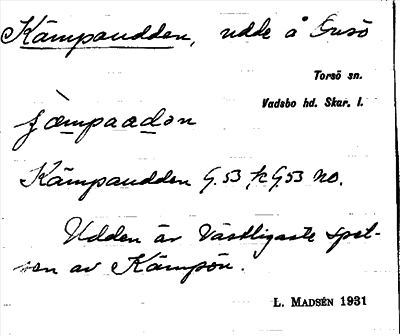 Kämpaudden, udde å Onsö
Torsö sn.
Vadsbo hd. Skar. l.
Kämpaudden G. 53 k G53 no.
Udden är västligaste spet-
sen av Kämpön.
L. MADSÉN 1931